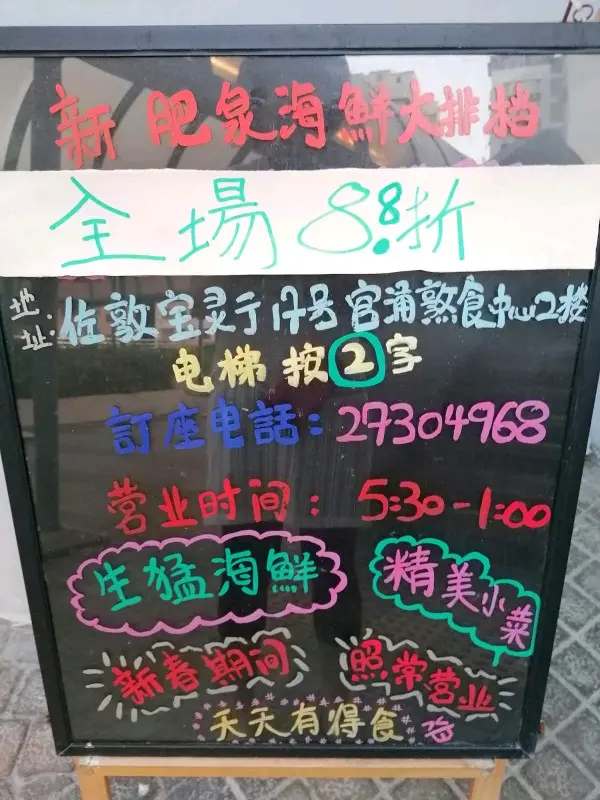 新肥泉海鮮大排档
全場8.8折
地址:佐敦宝灵亍17号官涌熟食中心2楼
电梯按2字
訂座电話:27304968
营业时间:5:30-1:00
生猛海鮮
精美小菜
新春期间
照常营业
天天有得食